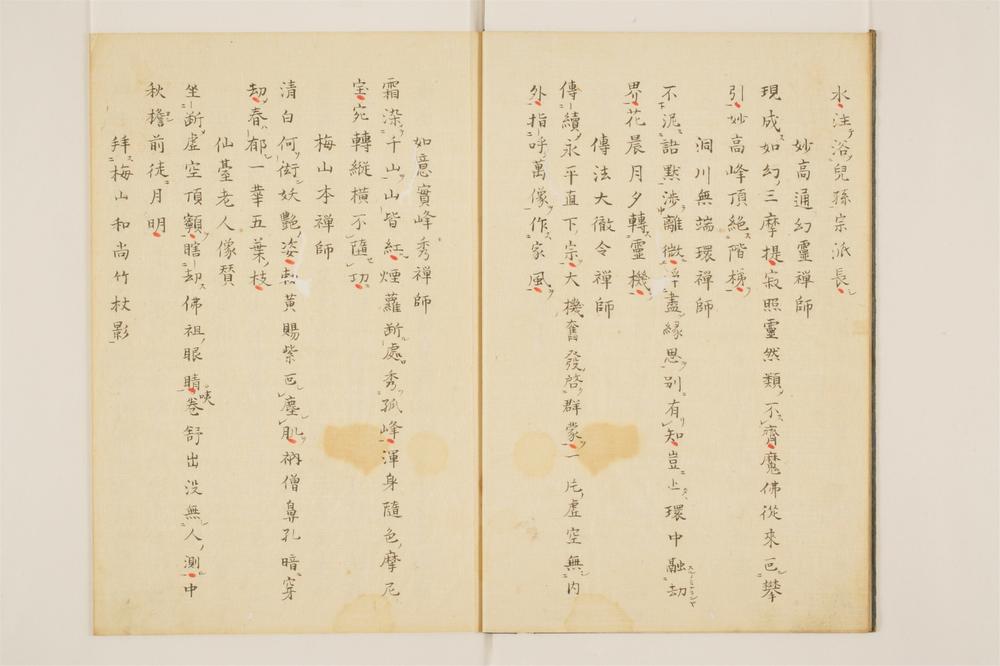 水注浴兒孫宗派長
妙高通幻靈禪師
現成如幻三摩提寂照靈然類不齊魔佛從來叵攀
引妙高峰頂絕階梯
洞川無端環禪師
不泥語默涉離微浮盡緣思別有知豈止環中融劫
界花晨月夕轉靈機
傳法大徹令禪師
傳續永平直下宗大機奮發啓群蒙一片虛空無內
外指呼萬像作家風
如意實峰秀禪師
霜染千山山皆紅煙蘿斷處秀孤峰渾身隨色摩尼
宝宛轉縱橫不匯功
梅山本禪師
清白何衒妖艷姿勅黃賜紫叵塵肌衲僧鼻孔暗穿
却春郁一華五葉枝
仙臺老人像賛
坐斷虛空頂𩕳瞎却佛祖眼睛卷舒出沒無人測中
秋檐前徒月明
拜梅山和尚竹杖影